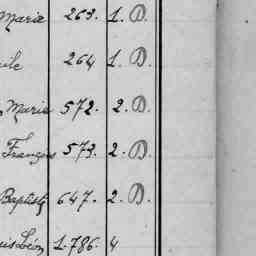 Marie 263. 1. D.
ile 264 1. D.
Marie 572. 2. D.
François 573. 2. D.
Baptiste 647. 2. D.
uis Léon 1.786. 4